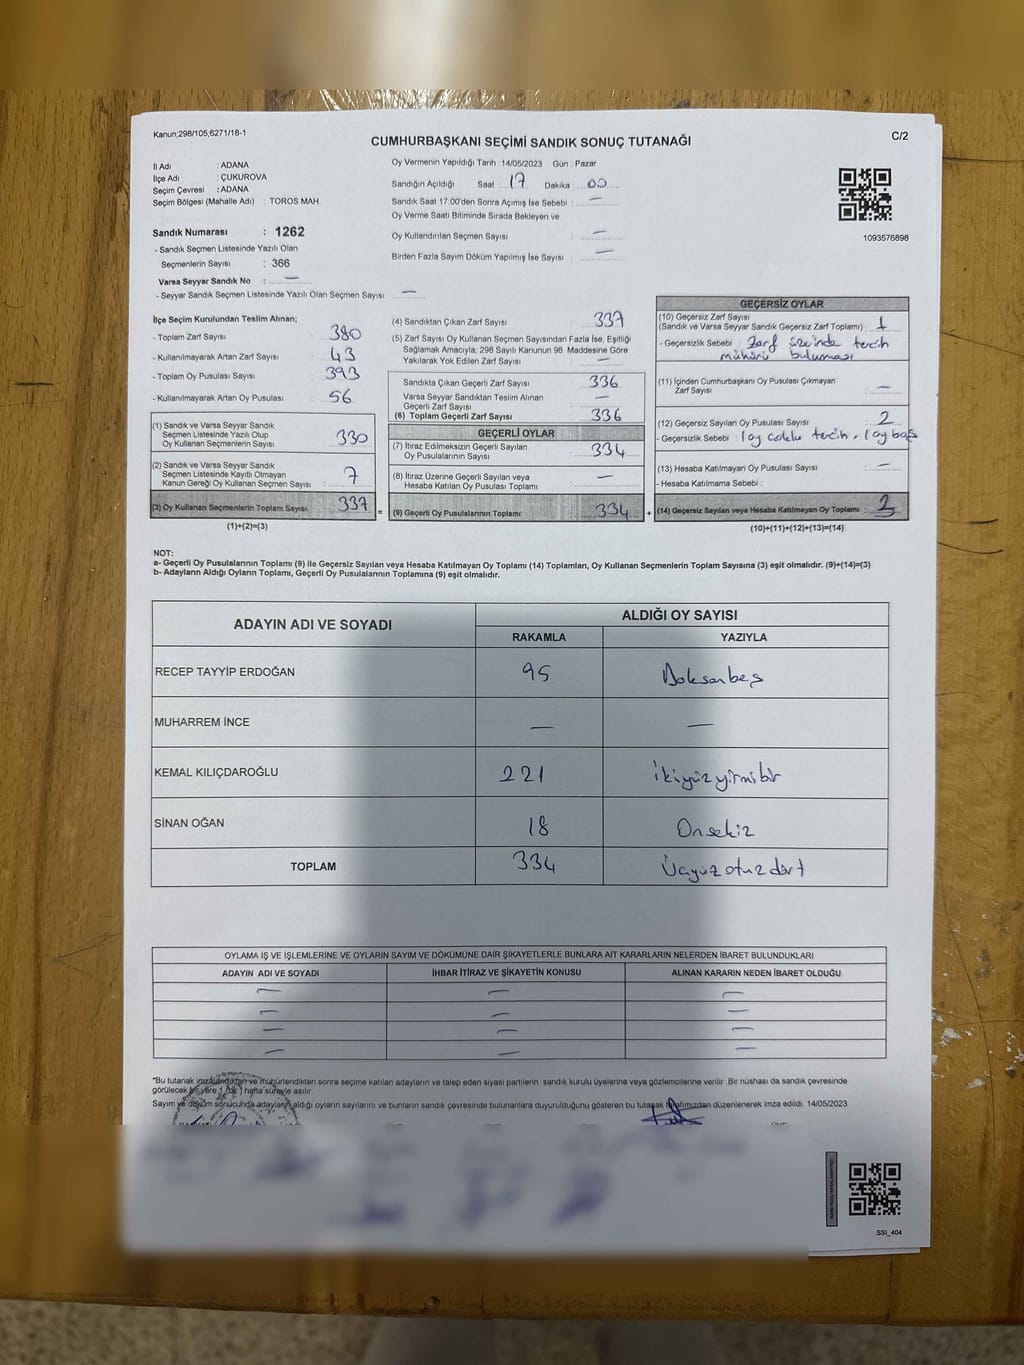 Kanun;298/105;6271/18-1
C/2
CUMHURBAŞKANI SEÇİMİ SANDIK SONUÇ TUTANAĞI
İl Adı : ADANA
İlçe Adı : ÇUKUROVA
Seçim Çevresi : ADANA
Seçim Bölgesi (Mahalle Adı) : TOROS MAH.
Sandık Numarası : 1262
- Sandık Seçmen Listesinde Yazılı Olan
Seçmenlerin Sayısı : 366
Varsa Seyyar Sandık No : —
- Seyyar Sandık Seçmen Listesinde Yazılı Olan Seçmen Sayısı : —
Oy Vermenin Yapıldığı Tarih : 14/05/2023 Gün : Pazar
Sandığın Açıldığı Saat : 17 Dakika : 00
Sandık Saat 17.00'den Sonra Açımış İse Sebebi : —
Oy Verme Saati Bitiminde Sırada Bekleyen ve
Oy Kullandırılan Seçmen Sayısı : —
Birden Fazla Sayım Döküm Yapılmış İse Sayısı : —
1093576898
İlçe Seçim Kurulundan Teslim Alınan;
- Toplam Zarf Sayısı : 380
- Kullanılmayarak Artan Zarf Sayısı : 43
- Toplam Oy Pusulası Sayısı : 393
- Kullanılmayarak Artan Oy Pusulası : 56
(1) Sandık ve Varsa Seyyar Sandık
Seçmen Listesinde Yazılı Olup
Oy Kullanan Seçmenlerin Sayısı : 330
(2) Sandık ve Varsa Seyyar Sandık
Seçmen Listesinde Kayıtlı Olmayan
Kanun Gereği Oy Kullanan Seçmen Sayısı : 7
(3) Oy Kullanan Seçmenlerin Toplam Sayısı : 337
(1)+(2)=(3)
=
(4) Sandıktan Çıkan Zarf Sayısı : 337
(5) Zarf Sayısı Oy Kullanan Seçmen Sayısından Fazla İse, Eşitliği
Sağlamak Amacıyla; 298 Sayılı Kanunun 98. Maddesine Göre
Yakılarak Yok Edilen Zarf Sayısı : —
Sandıkta Çıkan Geçerli Zarf Sayısı : 336
Varsa Seyyar Sandıktan Teslim Alınan
Geçerli Zarf Sayısı : —
(6) Toplam Geçerli Zarf Sayısı : 336
GEÇERLİ OYLAR
(7) İtiraz Edilmeksizin Geçerli Sayılan
Oy Pusulalarının Sayısı : 334
(8) İtiraz Üzerine Geçerli Sayılan veya
Hesaba Katılan Oy Pusulası Toplamı : —
(9) Geçerli Oy Pusulalarının Toplamı : 334
+
GEÇERSİZ OYLAR
(10) Geçersiz Zarf Sayısı
(Sandık ve Varsa Seyyar Sandık Geçersiz Zarf Toplamı) : 1
- Geçersizlik Sebebi : Zarf üzerinde tercih
mührü bulunması
(11) İçinden Cumhurbaşkanı Oy Pusulası Çıkmayan
Zarf Sayısı : —
(12) Geçersiz Sayılan Oy Pusulası Sayısı : 2
- Geçersizlik Sebebi : 1 oy çoklu tercih, 1 oy boş
(13) Hesaba Katılmayan Oy Pusulası Sayısı : —
- Hesaba Katılmama Sebebi :
(14) Geçersiz Sayılan veya Hesaba Katılmayan Oy Toplamı : 3
(10)+(11)+(12)+(13)=(14)
NOT:
a- Geçerli Oy Pusulalarının Toplamı (9) ile Geçersiz Sayılan veya Hesaba Katılmayan Oy Toplamı (14) Toplamları, Oy Kullanan Seçmenlerin Toplam Sayısına (3) eşit olmalıdır. (9)+(14)=(3)
b- Adayların Aldığı Oyların Toplamı, Geçerli Oy Pusulalarının Toplamına (9) eşit olmalıdır.
ADAYIN ADI VE SOYADI ALDIĞI OY SAYISI
RAKAMLA YAZIYLA
RECEP TAYYİP ERDOĞAN 95 Doksanbeş
MUHARREM İNCE — —
KEMAL KILIÇDAROĞLU 221 ikiyüzyirmibir
SİNAN OĞAN 18 Onsekiz
TOPLAM 334 Üçyüzotuzdört
OYLAMA İŞ VE İŞLEMLERİNE VE OYLARIN SAYIM VE DÖKÜMÜNE DAİR ŞİKAYETLERLE BUNLARA AİT KARARLARIN NELERDEN İBARET BULUNDUKLARI
ADAYIN ADI VE SOYADI İHBAR İTİRAZ VE ŞİKAYETİN KONUSU ALINAN KARARIN NEDEN İBARET OLDUĞU
— — —
— — —
— — —
— — —
*Bu tutanak imzalandıktan ve mühürlendikten sonra seçime katılan adayların ve talep eden siyasi partilerin sandık kurulu üyelerine veya gözlemcilerine verilir. Bir nüshası da sandık çevresinde
görülecek bir yere 1 (bir) hafta süreyle asılır.
Sayım ve döküm sonucunda adayların aldığı oyların sayılarını ve bunların sandık çevresinde bulunanlara duyurulduğunu gösteren bu tutanak tarafımızdan düzenlenerek imza edildi. 14/05/2023
SSI_404